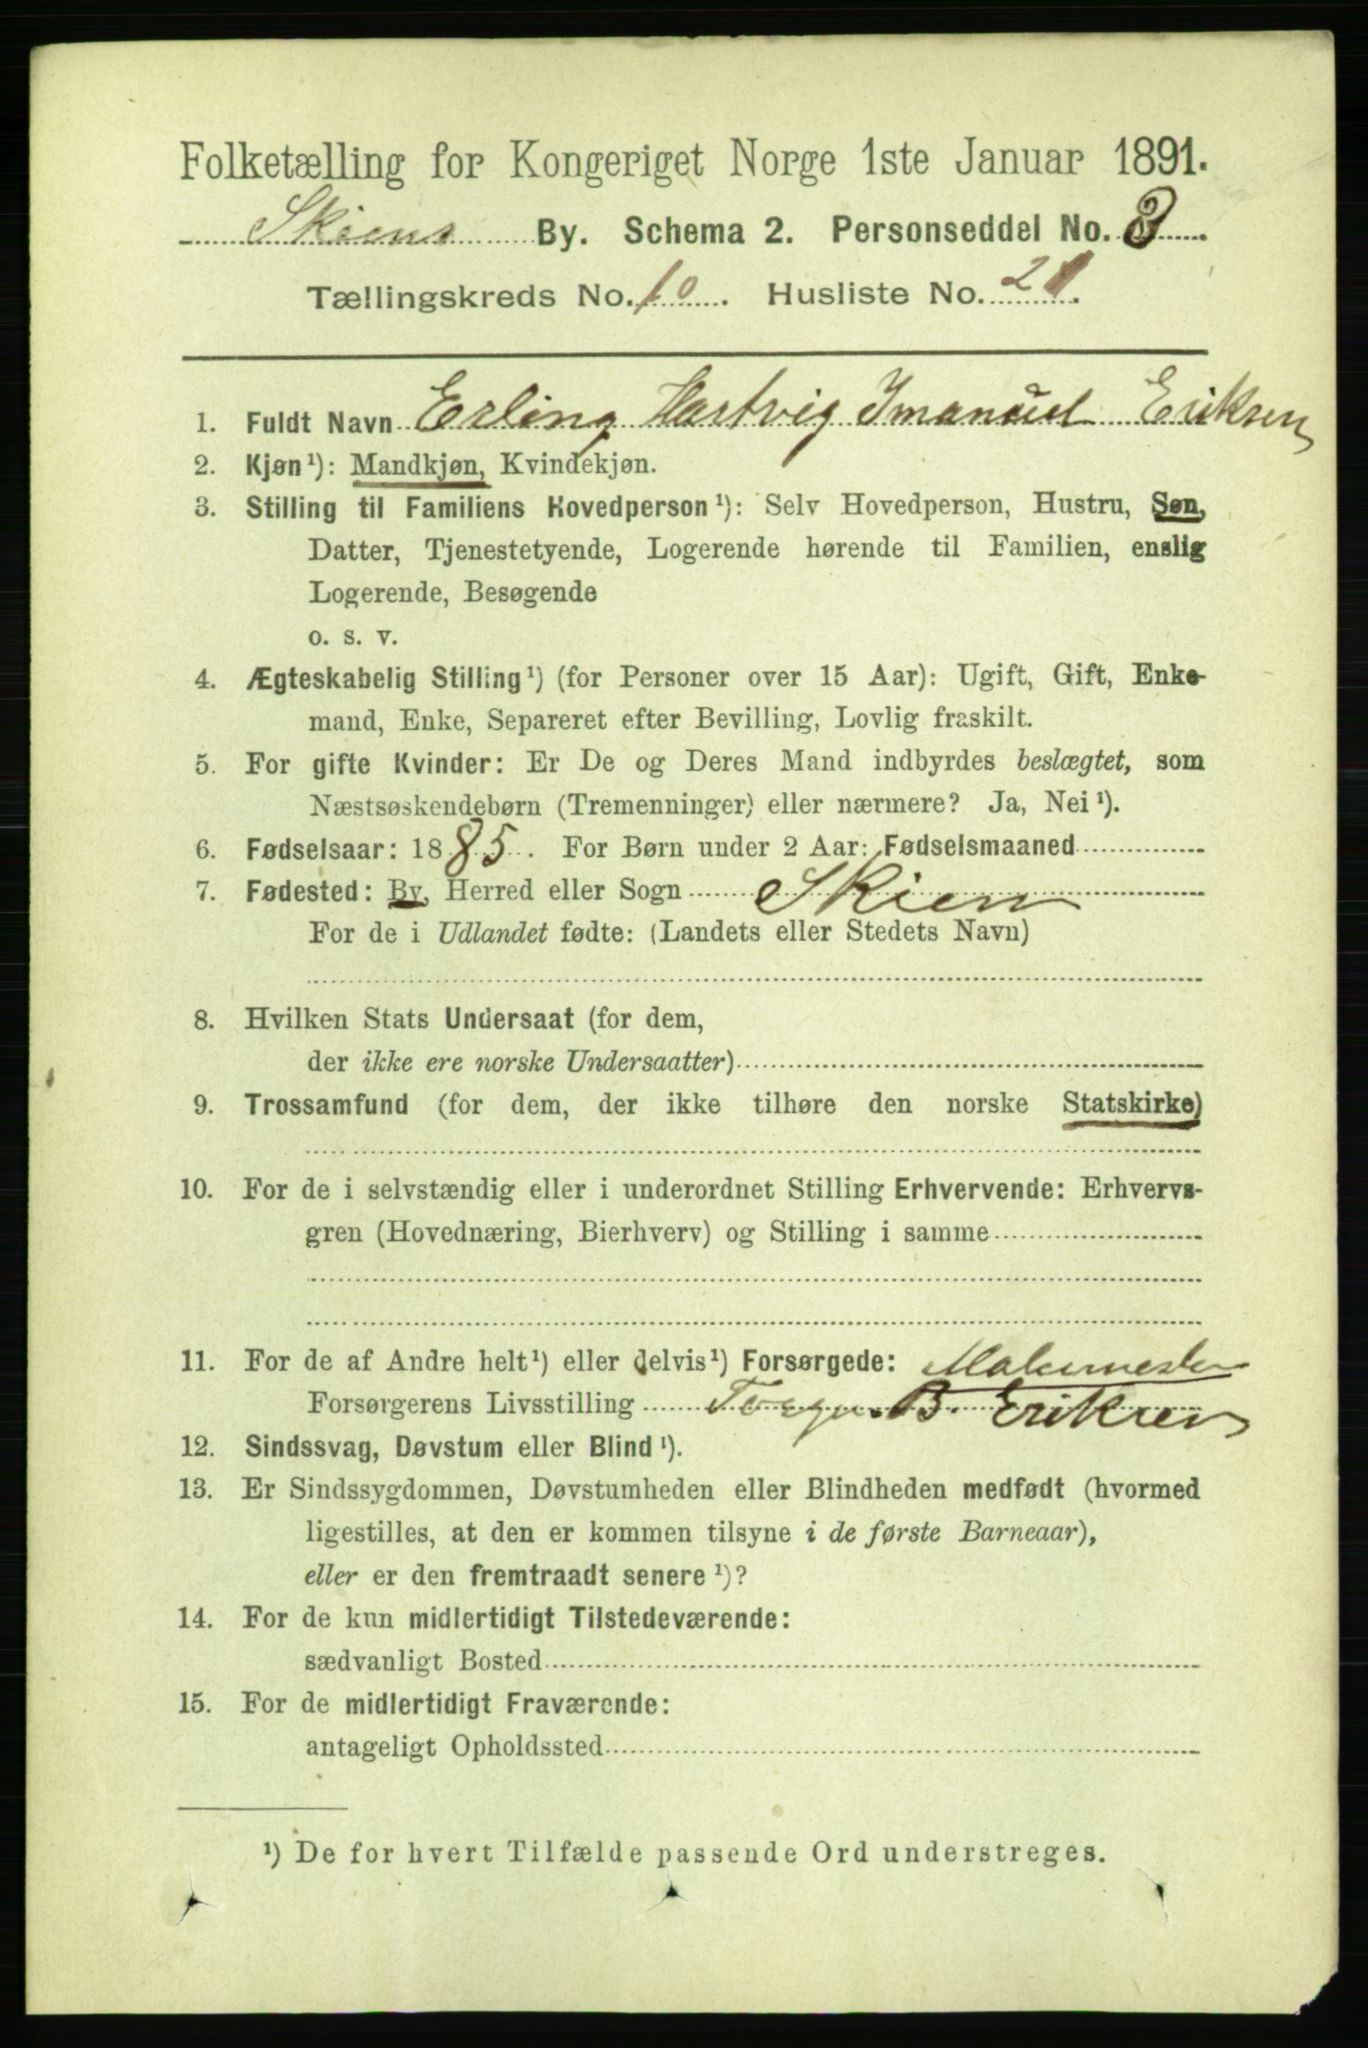 Folketælling for Kongeriget Norge 1ste Januar 1891.
Skiens By. Schema 2. Personseddel No. 3
Tællingskreds No. 10. Husliste No. 21.
1. Fuldt Navn Erling Hartvig Imanuel Eriksen
2. Kjøn¹): Mandkjøn, Kvindekjøn.
3. Stilling til Familiens Hovedperson¹): Selv Hovedperson, Hustru, Søn,
Datter, Tjenestetyende, Logerende hørende til Familien, enslig
Logerende, Besøgende
o. s. v.
4. Ægteskabelig Stilling¹) (for Personer over 15 Aar): Ugift, Gift, Enke-
mand, Enke, Separeret efter Bevilling, Lovlig fraskilt.
5. For gifte Kvinder: Er De og Deres Mand indbyrdes beslægtet, som
Næstsøskendebørn (Tremenninger) eller nærmere? Ja, Nei¹).
6. Fødselsaar: 1885. For Børn under 2 Aar: Fødselsmaaned
7. Fødested: By, Herred eller Sogn Skien
For de i Udlandet fødte: (Landets eller Stedets Navn)
8. Hvilken Stats Undersaat (for dem,
der ikke ere norske Undersaatter)
9. Trossamfund (for dem, der ikke tilhøre den norske Statskirke)
10. For de i selvstændig eller i underordnet Stilling Erhvervende: Erhvervs-
gren (Hovednæring, Bierhverv) og Stilling i samme
11. For de af Andre helt¹) eller delvis¹) Forsørgede: Malermester
Forsørgerens Livsstilling B. Eriksen
12. Sindssvag, Døvstum eller Blind¹).
13. Er Sindssygdommen, Døvstumheden eller Blindheden medfødt (hvormed
ligestilles, at den er kommen tilsyne i de første Barneaar),
eller er den fremtraadt senere¹)?
14. For de kun midlertidigt Tilstedeværende:
sædvanligt Bosted
15. For de midlertidigt Fraværende:
antageligt Opholdssted
¹) De for hvert Tilfælde passende Ord understreges.